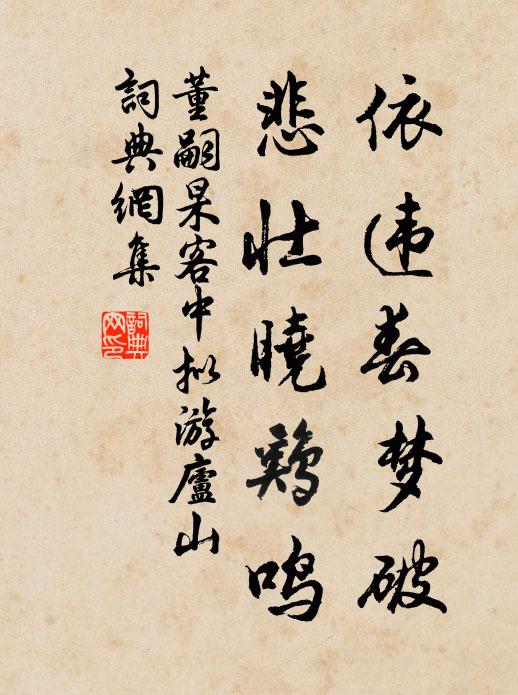 依违春梦破
悲壮晓鸡鸣
董嗣杲客中拟游廬山
詞典網集
詞典
网印